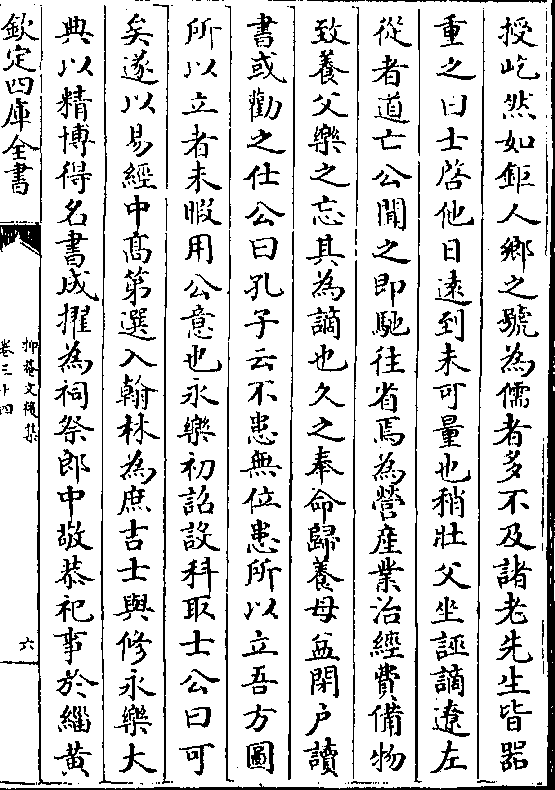 授屹然如鉅人鄉之號為儒者多不及諸老先生皆器
重之曰士啓他日遠到未可量也稍壯父坐誣謫遼左
從者道亡公聞之即馳往省焉為營産業治經費備物
致養父樂之忘其為謫也久之奉命歸養母益閉户讀
書或勸之仕公曰孔子云不患無位患所以立吾方圖
所以立者未暇用公意也永樂初詔設科取士公曰可
矣遂以易經中髙第選入翰林為庶吉士與修永樂大
典以精博得名書成擢為祠祭郎中敬恭祀事於緇黄
欽定四庫全書
抑菴文後集
卷三十四
六